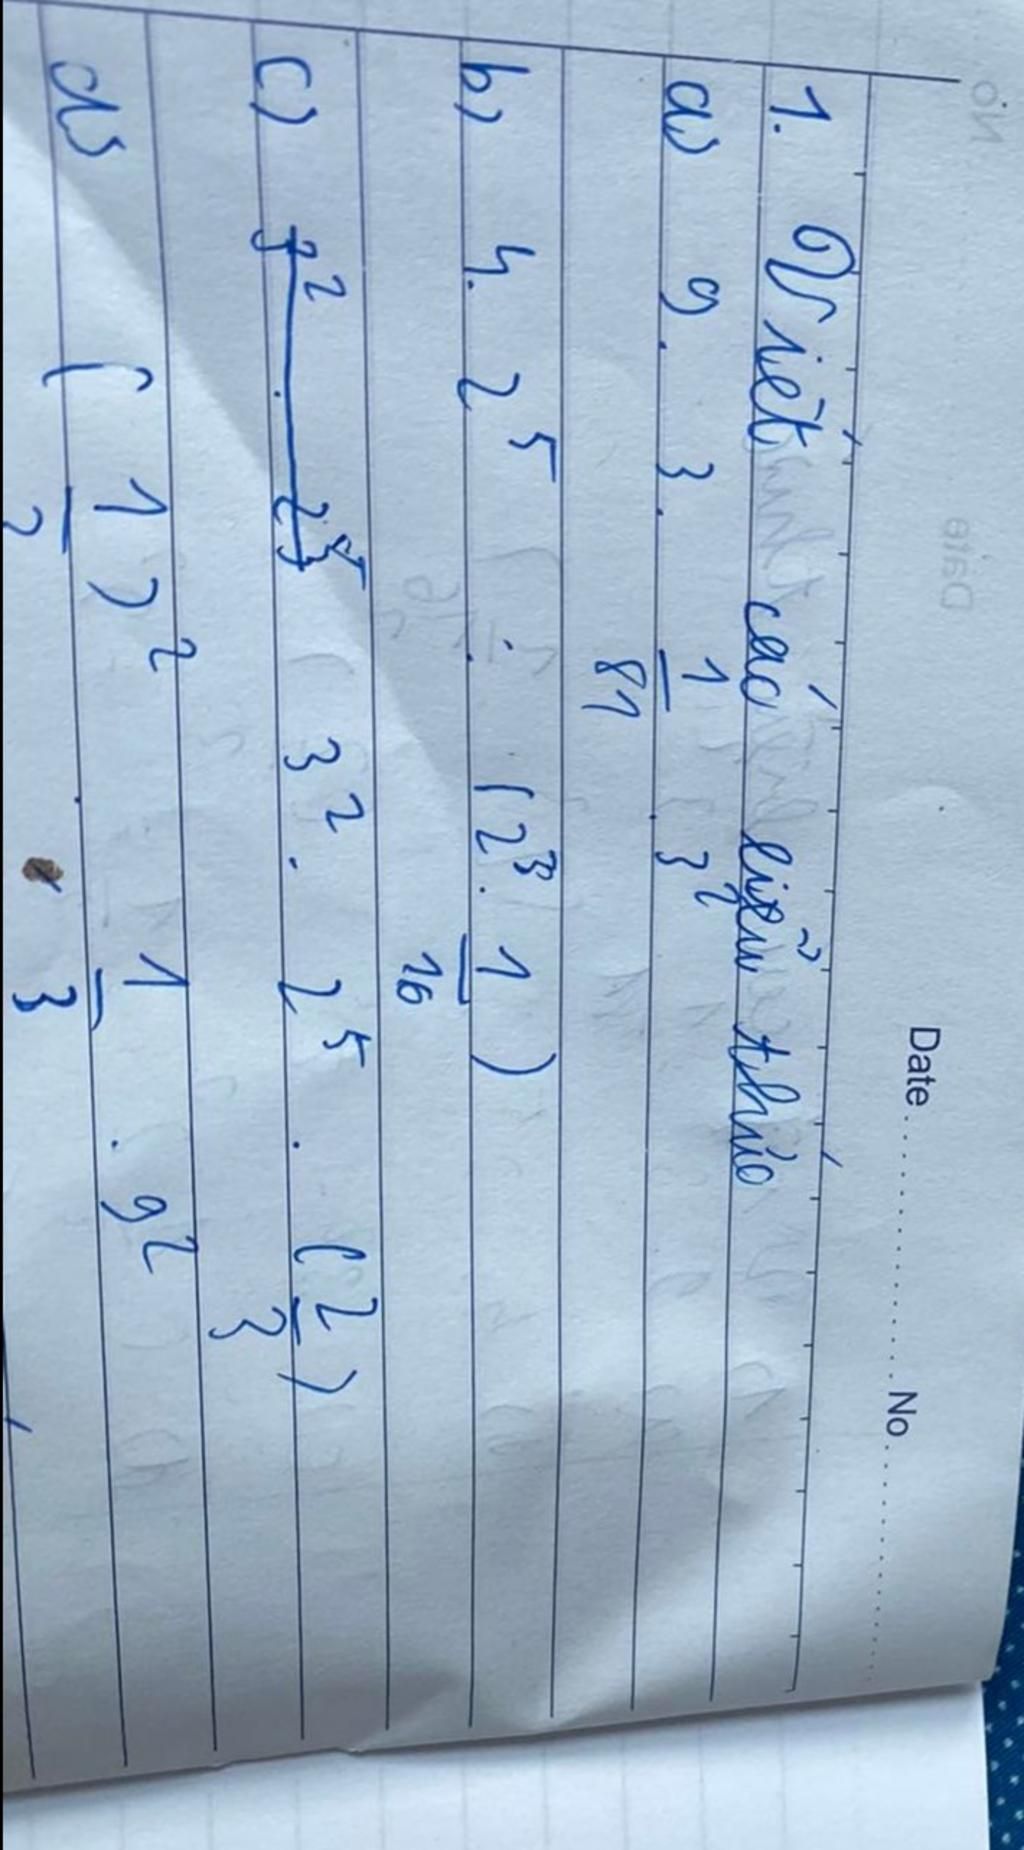 Date ........... No ...........
1. Viết các biểu thức
a) 9 . 3 . 1/81 . 3²
b) 4. 2⁵ : (2³. 1/16)
c) 3² . 2⁵ . (2/3)
d) (1/3)² . 1/3 . 9²